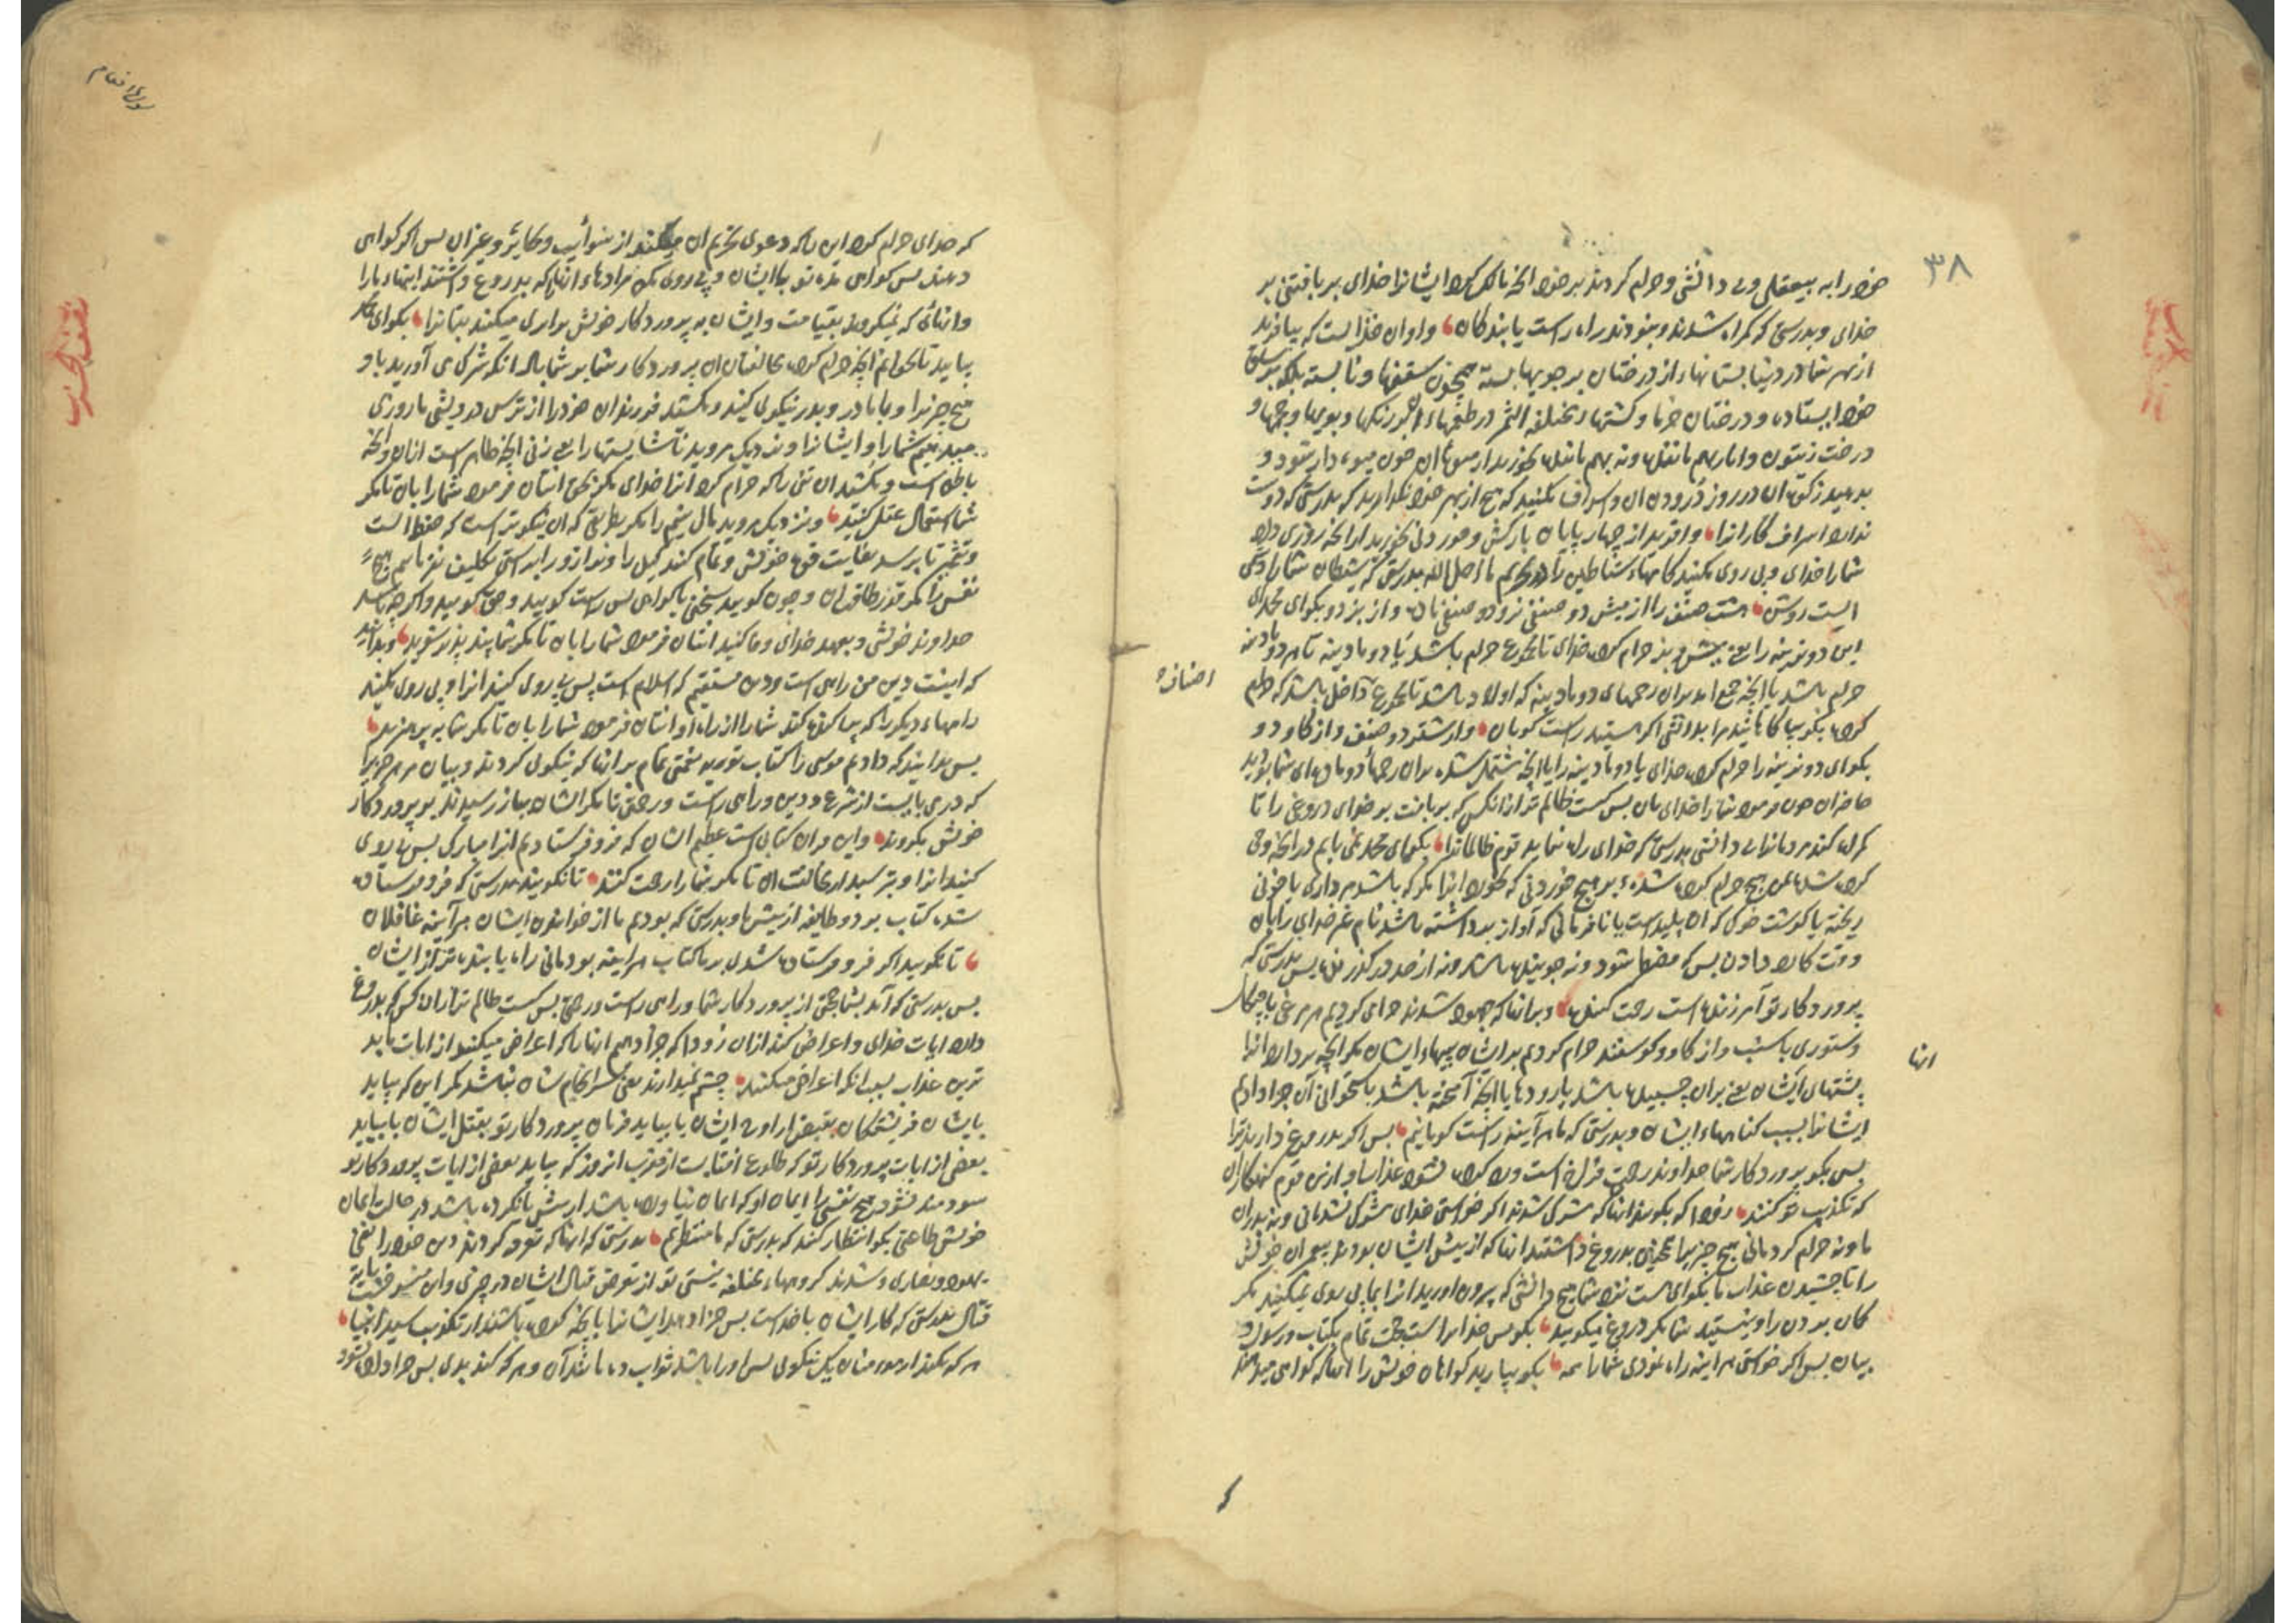 ۳۸
خود را به بیعقلی و بی دانشی و حرام کردند بر خود انچه مالک کرد ایشانرا خدای بر بافتنی بر
خدای و بدرستی که گمراه شدند و نبودند راه راست یابندگان و او آن خدایست که بیافرید
از بهر شما در دنیا بستانهاء از درختان بر چوبها بسته همچون سقفها و نابسته بلکه بر ساق
خود ایستاده و درختان خرما و کشتها مختلفه الثمر در طعمها و رنگها و بویها و حجمها و
درخت زیتون و انار بهم ماننده و نه بهم ماننده بخورید از میوهاء آن چون میوه دار شود و
بدهید زکوة آن در روز درودن آن و اسراف مکنید که هیچ از بهر خود نگذارید که بدرستی که دوست
ندارد اسراف کارانرا و آفرید از چهار پایان بارکش و خوردنی بخورید از انچه روزی داد
شما را خدای و پی روی مکنید کامهاء شیاطین را در تحریم ما احل الله بدرستی که شیطان شما را دشمنی
است روشن هشت صنف را از میش دو صنفی نر و دو صنفی ماده و از بز دو بگو ای محمد ای
این دو نرینه را یعنی میش و بز حرام کرد خدای تا مجموع حرام باشد یا دو مادینه تا هر دو مادینه
حرام باشد یا انچه جمع آمد بران رحمهای دو مادینه که اولاد باشد تا مجموع داخل باشد که حرام
کرد بگو بیاگاهانید مرا بدانشی اگر هستید راست گویان و از شتر دو صنف و از گاو دو
بگو ای دو نرینه را حرام کرد خدای یا دو مادینه را یا انچه مشتمل شده بران رحمهاء دو مادهای شما بودید
حاضران چون فرمود شما را خدای بان پس کیست ظالم تر از انکس که بر بافت بر خدای دروغی را تا
گمراه کند مردمانرا بی دانشی بدرستی که خدای راه ننماید قوم ظالمانرا بگو ای محمد نمی یابم در انچه وحی
کرده شد بمن هیچ حرام کرده شده بر هیچ خوردنی که بخورد آنرا مگر که باشد مرداری یا خونی
ریخته یا گوشت خوک که آن پلیدست یا نافرمانی که آواز برداشته باشد بنام غیر خدای را بان
وقت کارد دادن پس که مضطر شود و نه جوینده باشد و نه از حد درگذرنده پس بدرستی که
پروردگار تو آمرزنده است رحمت کننده و بر آنها که جهود شدند حرام کردیم هر مرغی با چنگال
و ستوری با سنب و از گاو و گوسفند حرام کردیم بر ایشان پیهاء ایشان مگر انچه بردارد آنرا
پشتهای ایشان یعنی بران چسبیده باشد یا رودها یا انچه آمیخته باشد باستخوانی آن جزا دادیم
ایشانرا بسبب گناههاء ایشان و بدرستی که ما هرآینه راست گویانیم پس اگر بدروغ دارند ترا
پس بگو پروردگار شما خداوند رحمت فراخ است و رد کرده نشود عذاب او از قوم گنهکاران
که تکذیب تو کنند زود که بگویند آنها که مشرک شدند اگر خواستی خدای مشرک نشدمانی و نه پدران
ما و نه حرام کردمانی هیچ چیز را همچنین بدروغ داشتند آنها که از پیش ایشان بودند پیغمبران خویش
را تا چشیدن عذاب ما بگو ای هست نزد شما هیچ دانشی که بیرون آورید آنرا بما پی روی نمیکنید مگر
گمان بردن را و نیستید شما مگر دروغ میگویید بگو پس خدایراست حجت تمام بکتاب و رسول و
بیان پس اگر خواستی هراینه راه نمودی شما را همه بگو بیارید گواهان خویش را آنها که گواهی میدهند
اصناف
انها
سوره انعام
که خدای حرام کرد این را که دعوی تحریم ان میکنند از سوائب و بحایر و غیر ان پس اگر گواهی
دهند پس گواهی مده تو با ایشان و پی روی مکن مرادهاء آنها که بدروغ داشتند ایتهاء ما را
و آنهائی که نمیگروند بقیامت و ایشان به پروردگار خویش برابری میکنند بتانرا بگو ای محمد
بیایید تا بخوانم انچه حرام کرد پروردگار شما بر شما بانکه شرک می آورید باو
هیچ چیز را و با مادر و پدر نیکوی کنید و مکشید فرزندان خود را از ترس درویشی ما روزی
میدهیم شما را و ایشانرا و نزدیک مروید ناشایستها را یعنی زنی انچه ظاهر است ازان و انچه
باطن است و مکشید ان تنی را که حرام کرد آنرا خدای مگر بحق انتان فرمود شما را بان تا مگر
شما استعمال عقل کنید و نزدیک مروید مال یتیم را مگر بطریقی که آن نیکوتر است که حفظ است
و تثمیر تا برسد بغایت قوت خویش و تمام کنید کیل را و ترازو را براستی تکلیف نفرماییم هیچ
نفس را مگر قدر طاقت آن و چون گویید سخنی یا گواهی پس راست گویید و حق گویید و اگر چه باشد
خداوند خویش و بعهد خدای وفا کنید انتان فرمود شما را بان تا مگر شما پند پذیر شوید و بدانید
که اینست دین من راهی است و دین مستقیم که اسلام است پس پی روی کنید آنرا و پی روی مکنید
راههاء دیگر را که پراکنده کند شما را از راه او انتان فرمود شما را بان تا مگر شما بپرهیزید
پس بدانید که دادیم موسی را کتاب توریة نعمتی تمام بر آنها که نیکوی کردند و بیان هر چیز را
که دربایست از شرع و دین و راهی راست و رحمتی تا مگر ایشان بباز رسیدند بر پروردگار
خویش بگروند و این قران کتابی است عظیم الشان که فرو فرستادیم آنرا مبارک پس پی روی
کنید آنرا و بترسید از مخالفت آن تا مگر شما را رحمت کنند تا نگویید بدرستی که فرو فرستاده
شد کتاب بر دو طایفه از پیش ما و بدرستی که بودیم ما از خواندن ایشان هرآینه غافلان
تا نگویید اگر فرو فرستاده شدی بر ما کتاب هراینه بودمانی راه یابنده تر از ایشان
پس بدرستی که آمد بشما حجتی از پروردگار شما و راهی راست و رحمتی پس کیست ظالم تر از ان کس که بدروغ
دارد ایات خدای و اعراض کند ازان زودا که جزا دهیم آنها را که اعراض میکنند از ایات ما بد
ترین عذاب بسبب انکه اعراض میکنند چشم نمیدارند یعنی سرانجام شان نباشد مگر این که بیاید
بایشان فریشتگان بقبض ارواح ایشان یا بیاید فرمان پروردگار تو بقتل ایشان یا بیاید
بعضی از ایات پروردگار تو که طلوع افتابست از مغرب انروز که بیاید بعضی از ایات پروردگار تو
سودمند نشود هیچ نفس را ایمان او که ایمان نیاورده باشد از پیش یا نکرده باشد در حالت ایمان
خویش طاعتی بگو انتظار کنید که بدرستی که ما منتظریم بدرستی که آنها که تفرقه کردند دین خود را یعنی
یهود و نصاری و شدند گروههاء مختلفه نیستی تو از تعرض قتال ایشان در چیزی و این منسوخست بآیه
قتال بدرستی که کار ایشان باخداست پس جزا دهد ایشانرا بانچه کرده باشند از تکذیب سید انبیا
هر که بکند از مومنان یک نیکوی پس او را باشد ثواب ده مانند آن و هر که کند بدی پس جزا داده نشود